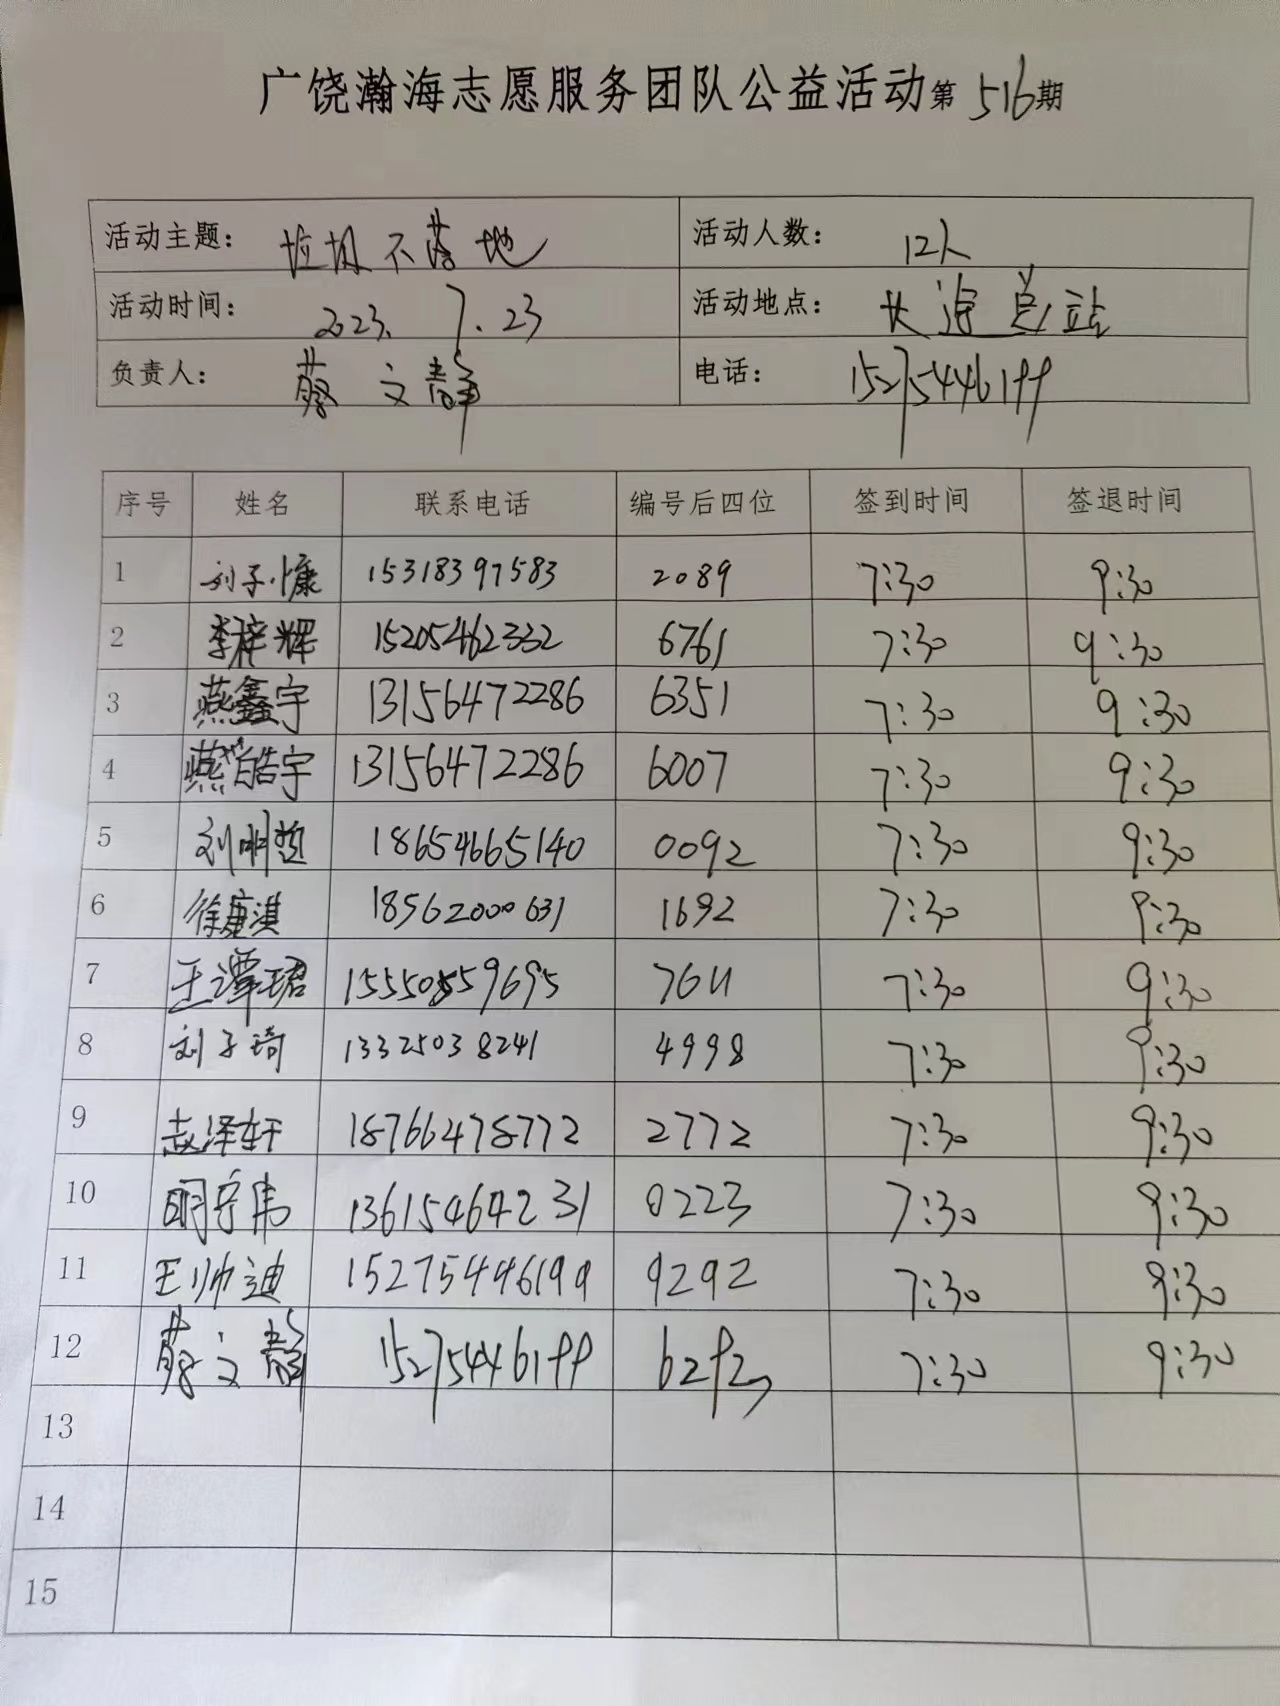 广饶瀚海志愿服务团队公益活动第516期
活动主题: 垃圾不落地 活动人数: 12人
活动时间: 2023.7.23 活动地点: 长途总站
负责人: 蔡文静 电话: 15275446199
序号 姓名 联系电话 编号后四位 签到时间 签退时间
1 刘子慷 15318397583 2089 7:30 9:30
2 李梓辉 15205462332 6761 7:30 9:30
3 燕鑫宇 13156472286 6351 7:30 9:30
4 燕皓宇 13156472286 6007 7:30 9:30
5 刘明哲 18654665140 0092 7:30 9:30
6 徐康淇 18562000631 1692 7:30 9:30
7 王潭珺 15550559695 7611 7:30 9:30
8 刘子琦 13325038241 4998 7:30 9:30
9 赵泽轩 18766478772 2772 7:30 9:30
10 明宇伟 13615464231 0223 7:30 9:30
11 王帅迪 15275446199 9292 7:30 9:30
12 蔡文静 15275446199 7:30 9:30
13
14
15